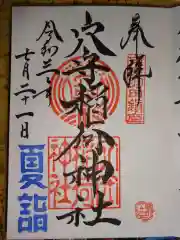 奉拝
穴守稲荷神社
令和三年
七月二十一日
夏詣